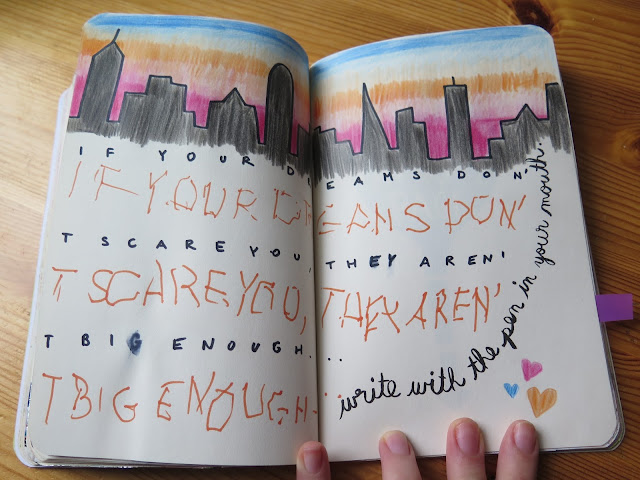 IF YOUR DREAMS DON'
IF YOUR DREAMS DON'
T SCARE YOU, THEY AREN'
T SCARE YOU, THEY AREN'
T BIG ENOUGH...
T BIG ENOUGH...
write with the pen in your mouth.